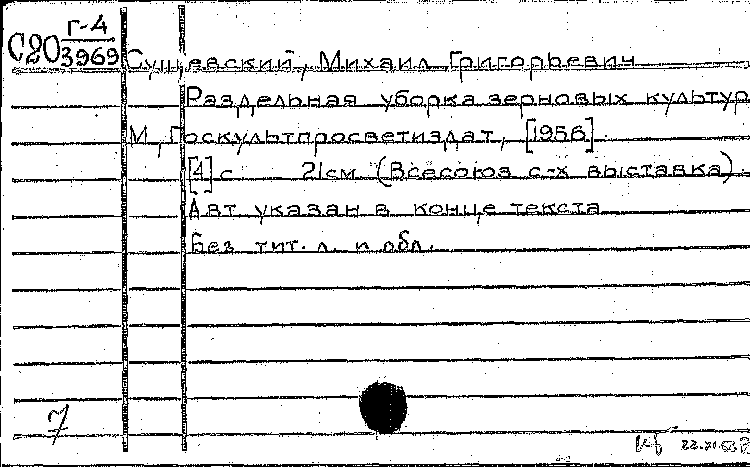 Г-4
С20 3969
Сушевский, Михаил Григорьевич
Раздельная уборка зерновых культур
М, Госкультпросветиздат, [1956].
[4] с 21см (Всесоюз с-х выставка).
Авт указан в конце текста
Без тит. л. и обл.
7